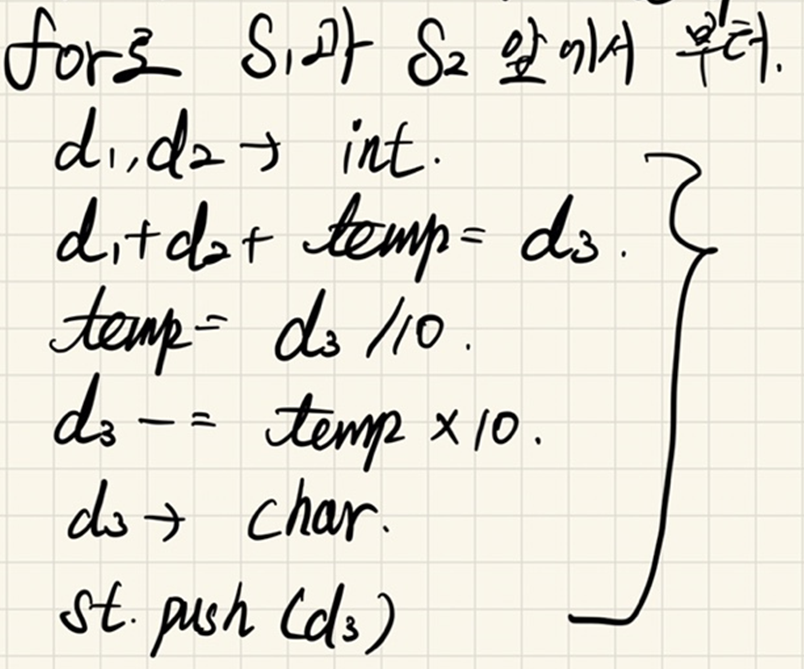 for로 S₁과 S₂ 앞에서 부터.
d₁, d₂ → int.
d₁+d₂+ temp = d₃.
temp = d₃ /10.
d₃ -= temp ×10.
d₃ → char.
st. push (d₃)